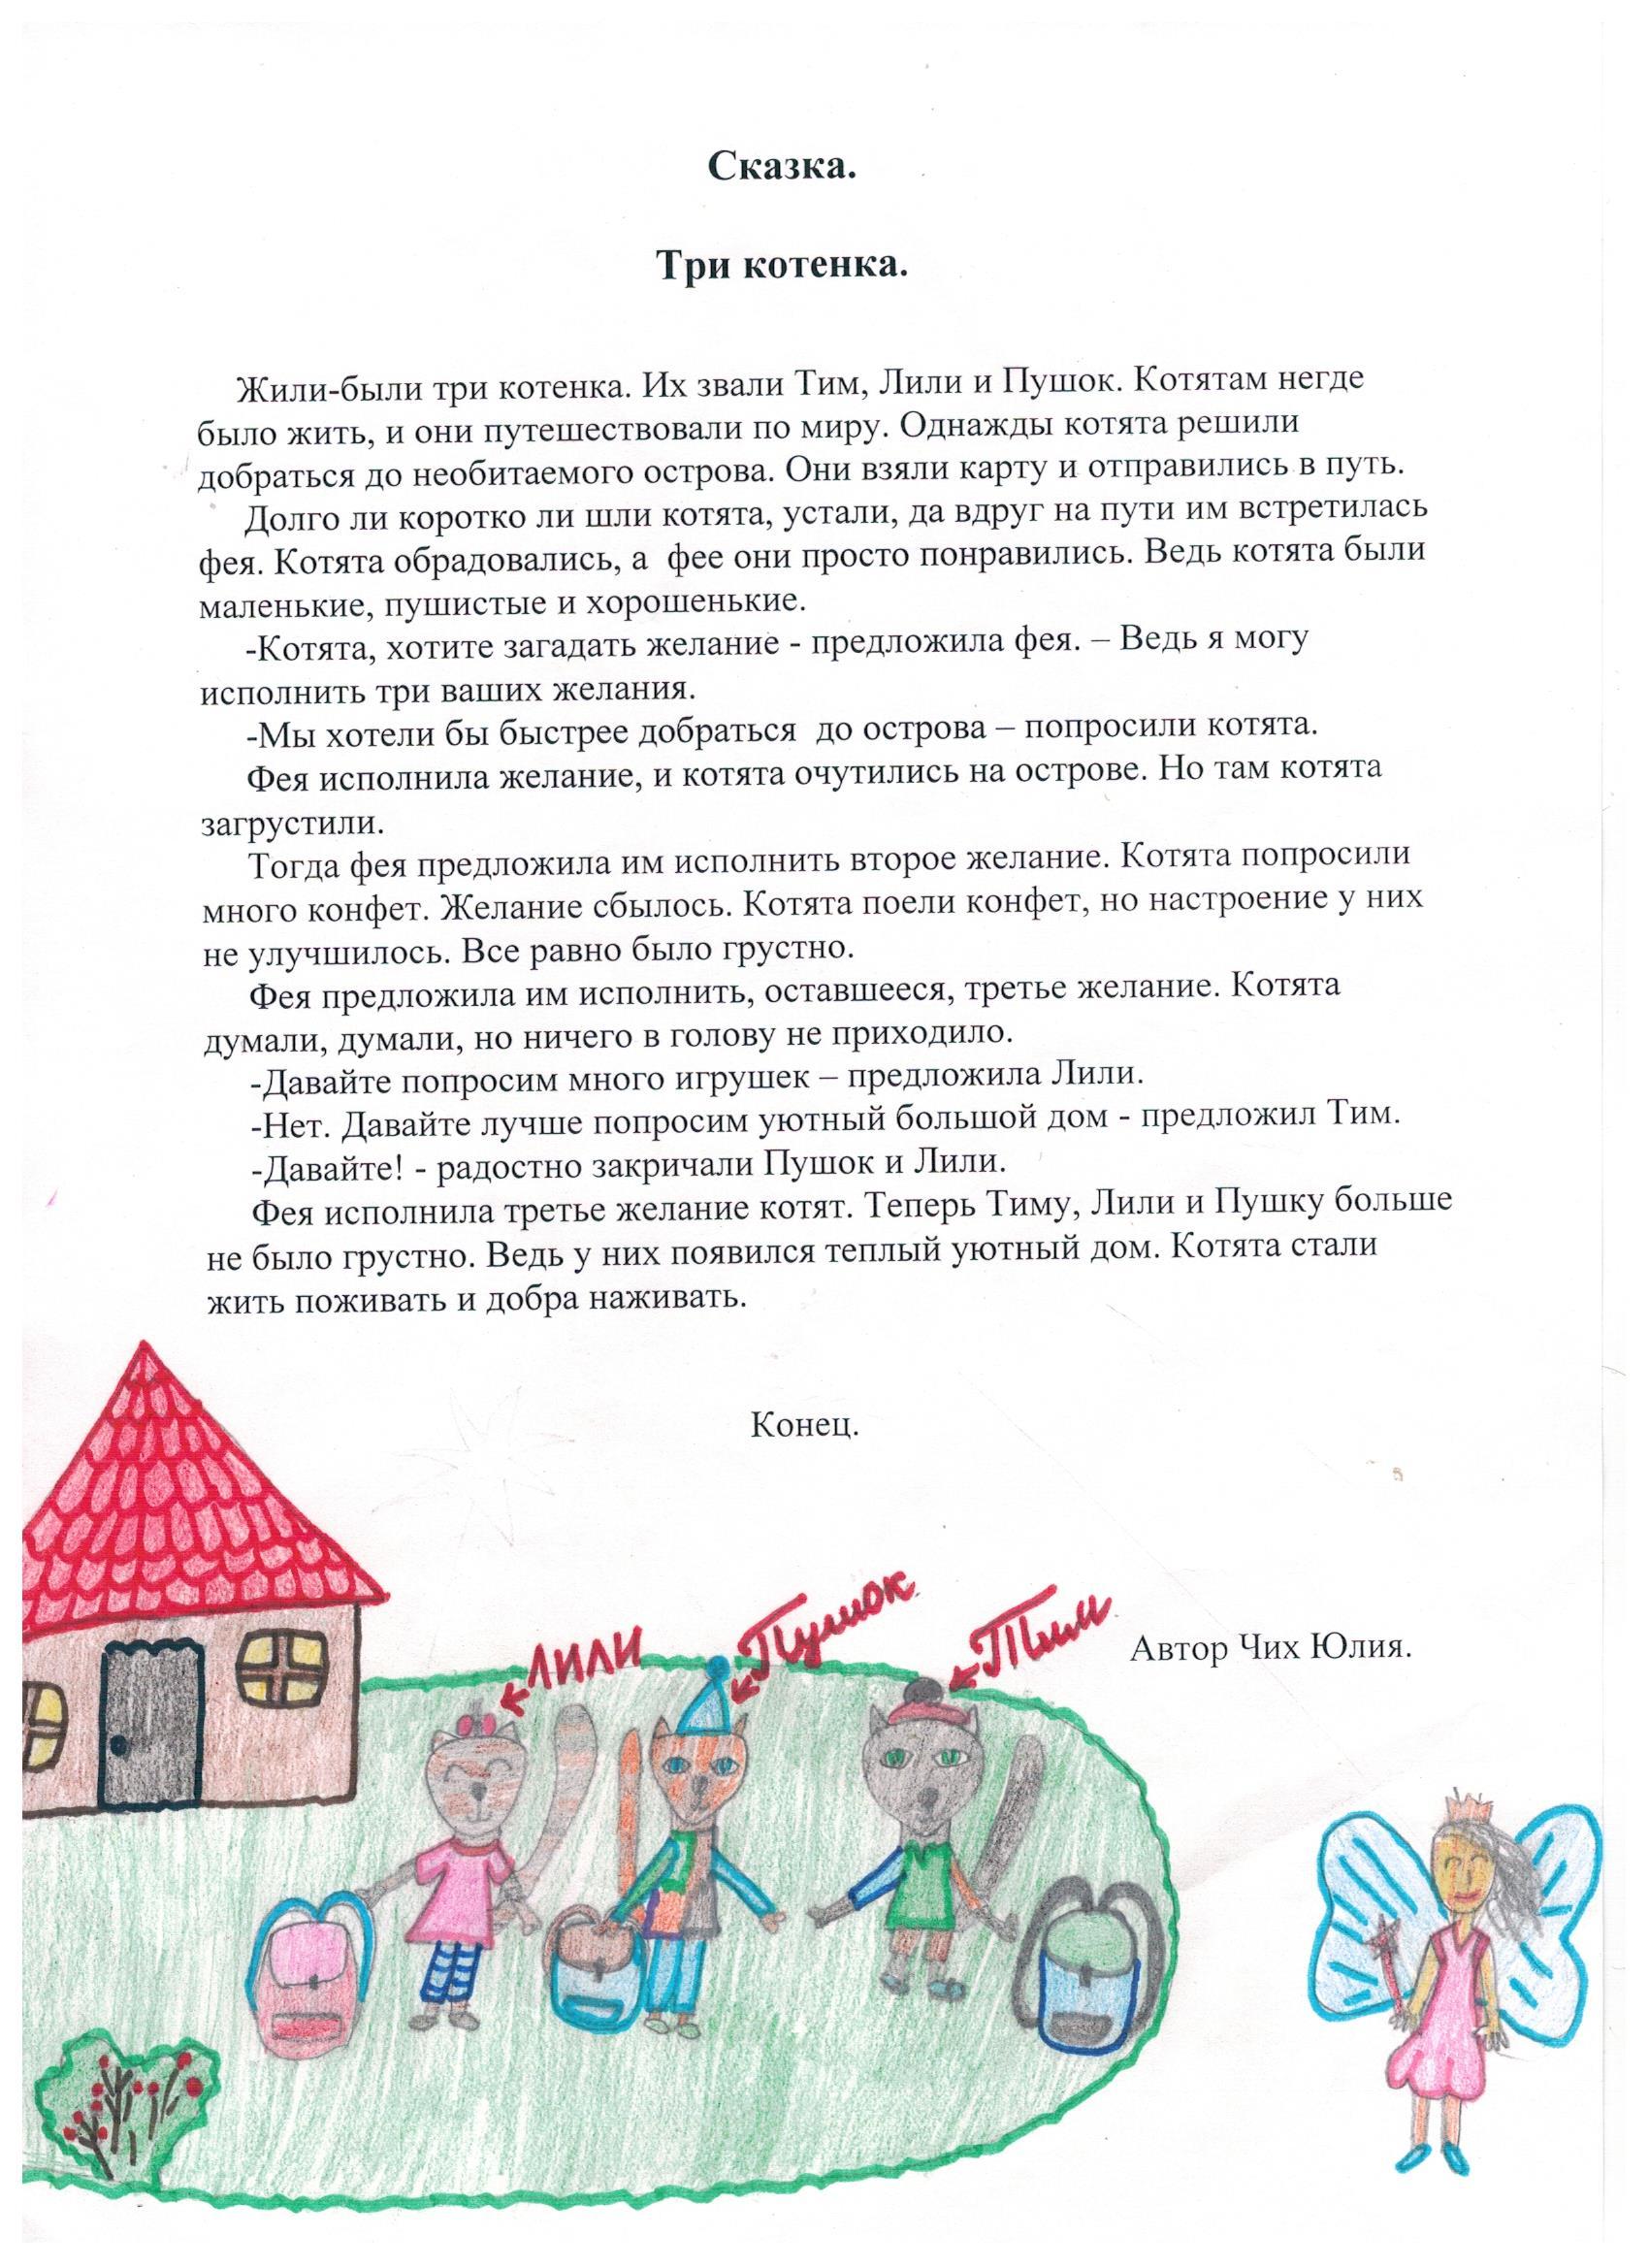 Сказка.
Три котенка.
Жили-были три котенка. Их звали Тим, Лили и Пушок. Котятам негде
было жить, и они путешествовали по миру. Однажды котята решили
добраться до необитаемого острова. Они взяли карту и отправились в путь.
Долго ли коротко ли шли котята, устали, да вдруг на пути им встретилась
фея. Котята обрадовались, а  фее они просто понравились. Ведь котята были
маленькие, пушистые и хорошенькие.
-Котята, хотите загадать желание - предложила фея. – Ведь я могу
исполнить три ваших желания.
-Мы хотели бы быстрее добраться  до острова – попросили котята.
Фея исполнила желание, и котята очутились на острове. Но там котята
загрустили.
Тогда фея предложила им исполнить второе желание. Котята попросили
много конфет. Желание сбылось. Котята поели конфет, но настроение у них
не улучшилось. Все равно было грустно.
Фея предложила им исполнить, оставшееся, третье желание. Котята
думали, думали, но ничего в голову не приходило.
-Давайте попросим много игрушек – предложила Лили.
-Нет. Давайте лучше попросим уютный большой дом - предложил Тим.
-Давайте! - радостно закричали Пушок и Лили.
Фея исполнила третье желание котят. Теперь Тиму, Лили и Пушку больше
не было грустно. Ведь у них появился теплый уютный дом. Котята стали
жить поживать и добра наживать.
Конец.
Лили
Пушок
Тим
Автор Чих Юлия.